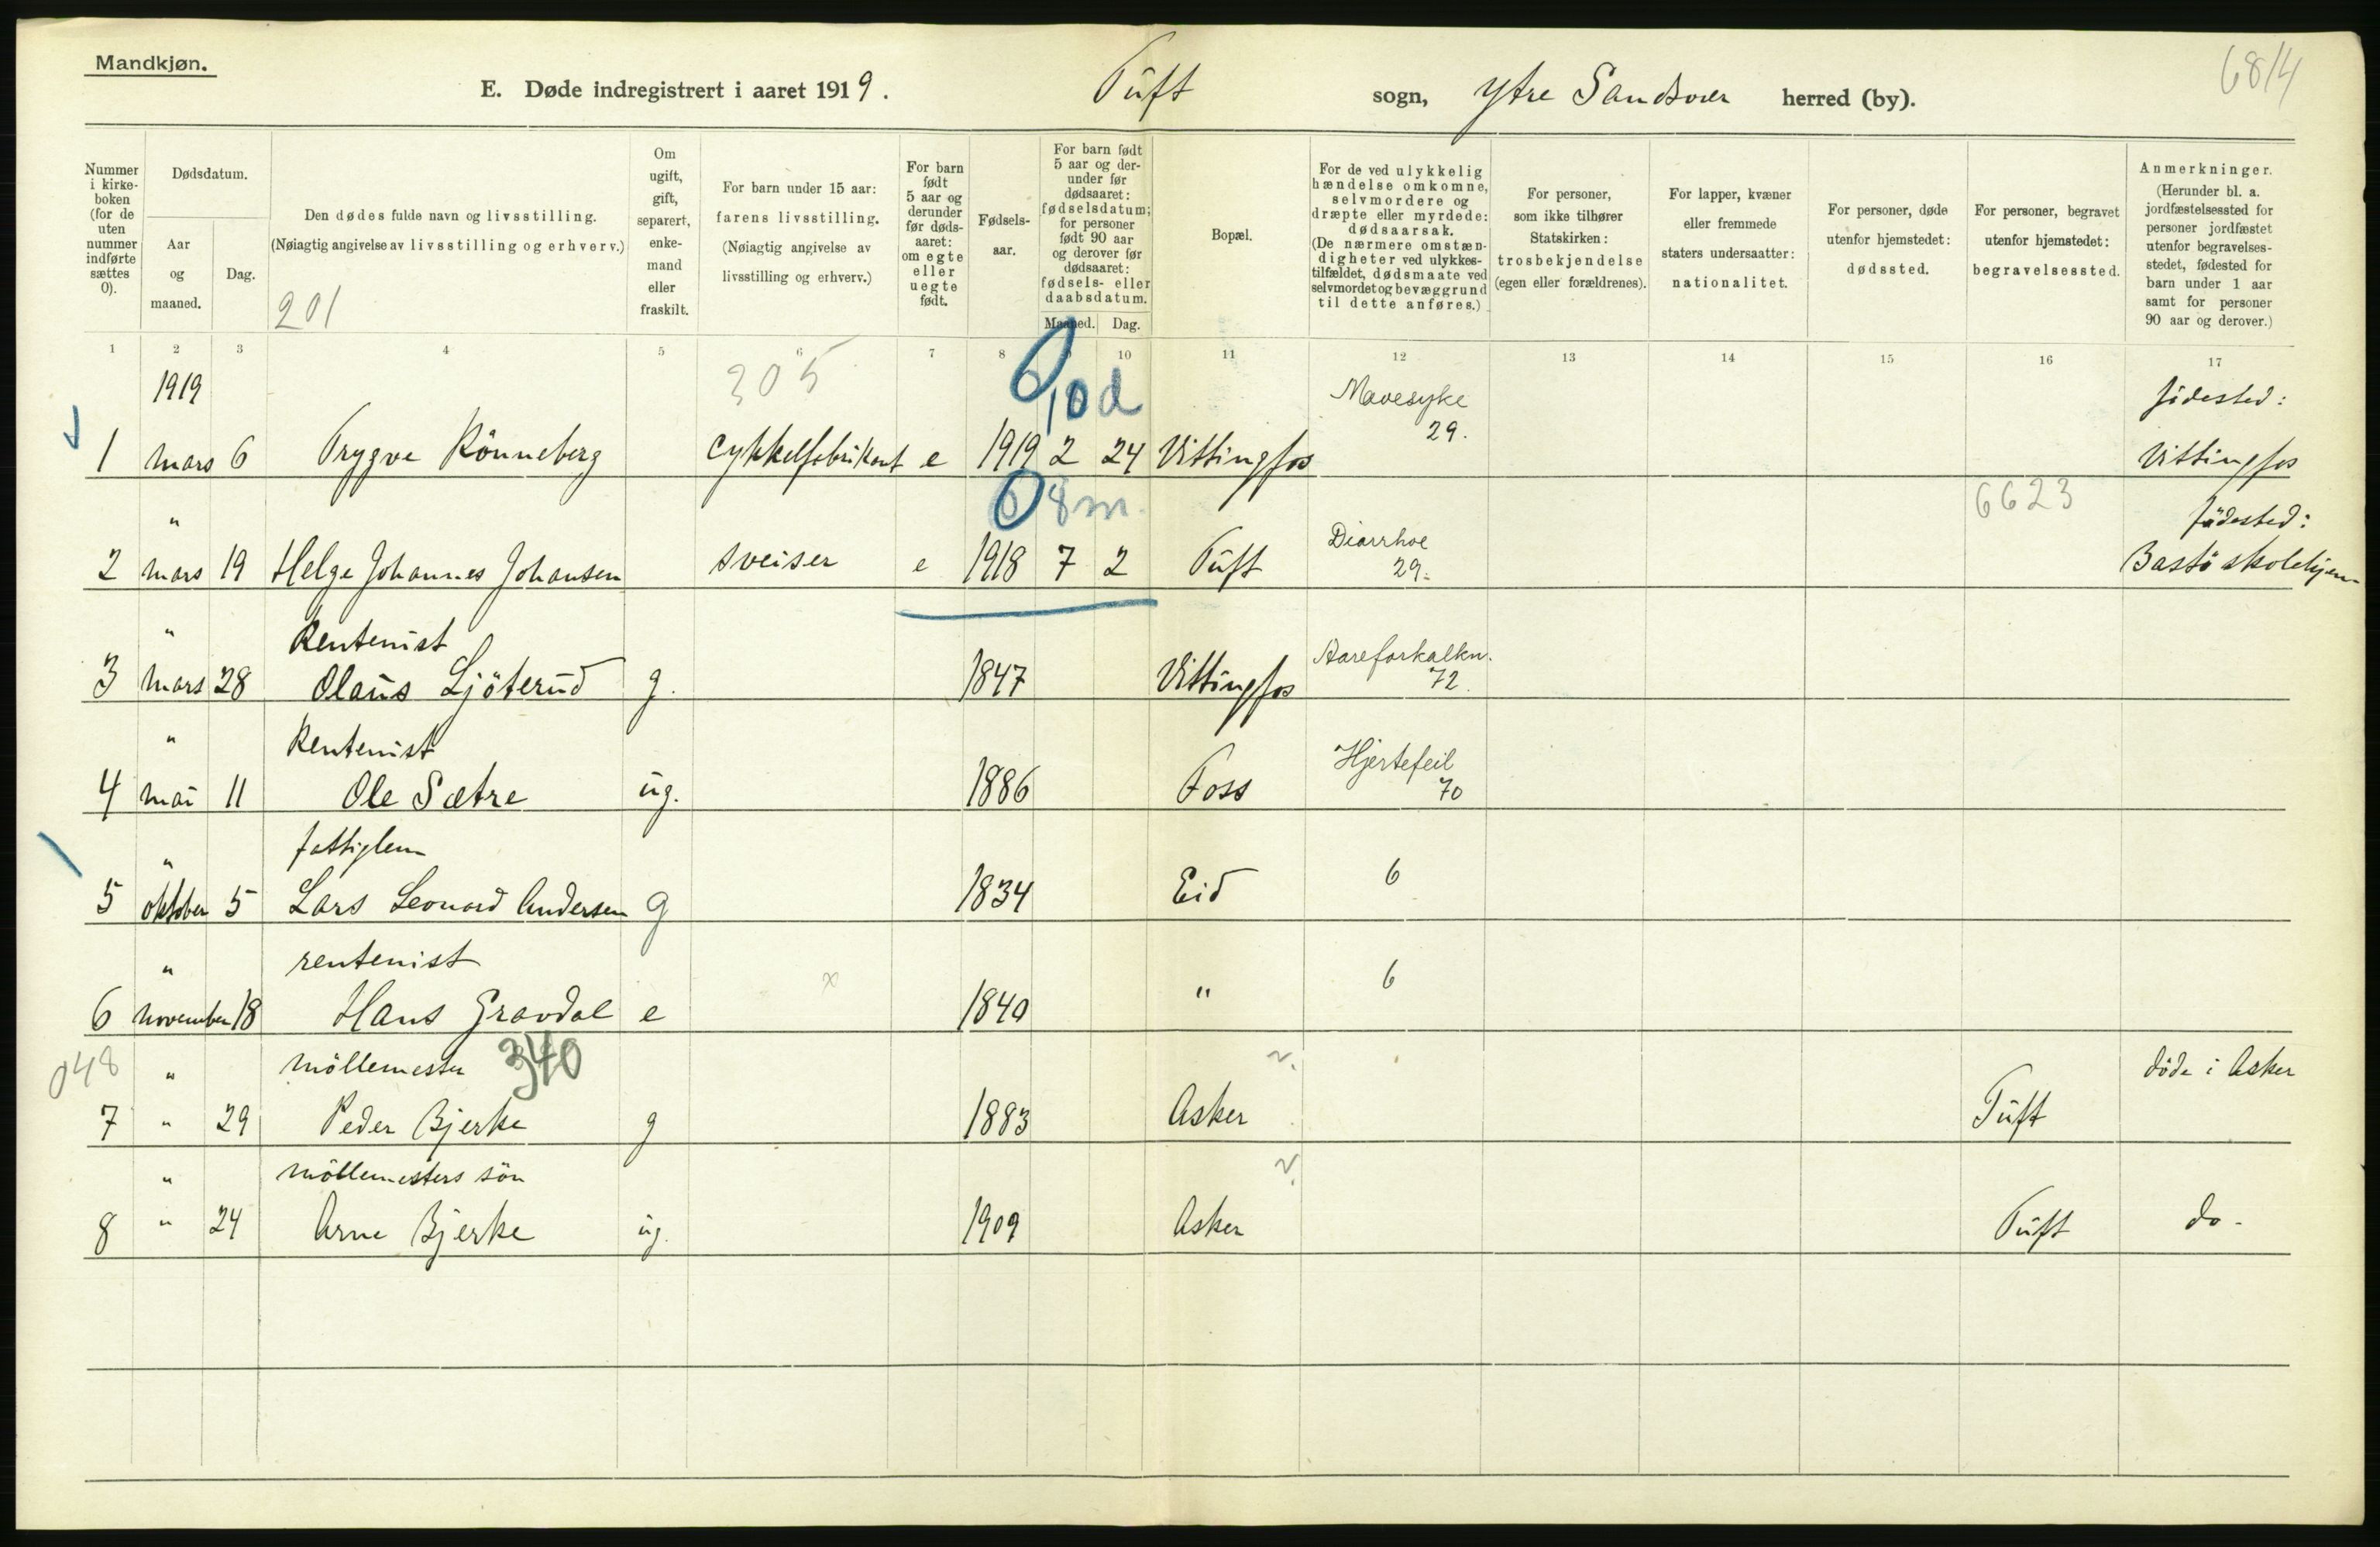 Mandkjøn.
6814
E. Døde indregistrert i aaret 1919. Tuft sogn, Ytre Sandsvær herred (by).
Nummer i kirkeboken (for de uten nummer indførte sættes 0).
Dødsdatum.
Aar og maaned.
Dag.
Den dødes fulde navn og livsstilling.
(Nøiagtig angivelse av livsstilling og erhverv.)
201
Om ugift, gift, separert, enkemand eller fraskilt.
For barn under 15 aar: farens livsstilling.
(Nøiagtig angivelse av livsstilling og erhverv.)
For barn født 5 aar og derunder før dødsaaret: om egte eller uegte født.
Fødselsaar.
For barn født 5 aar og derunder før dødsaaret: fødselsdatum; for personer født 90 aar og derover før dødsaaret: fødsels- eller daabsdatum.
Maaned. Dag.
Bopæl.
For de ved ulykkelig hændelse omkomne, selvmordere og dræpte eller myrdede: dødsaarsak.
(De nærmere omstændigheter ved ulykkestilfældet, dødsmaate ved selvmordet og bevæggrund til dette anføres.)
For personer, som ikke tilhører Statskirken: trosbekjendelse (egen eller forældrenes).
For lapper, kvæner eller fremmede staters undersaatter: nationalitet.
For personer, døde utenfor hjemstedet: dødssted.
For personer, begravet utenfor hjemstedet: begravelsessted.
Anmerkninger.
(Herunder bl. a. jordfæstelsessted for personer jordfæstet utenfor begravelsesstedet, fødested for barn under 1 aar samt for personer 90 aar og derover.)
1 2 3 4 5 6 7 8 9 10 11 12 13 14 15 16 17
1919 305 0 10 d Mavesyke födested:
1 mars 6 Trygve Rönneberg cykkelfabrikant e 1919 2 24 Vittingfos 29. Vittingfos
" 0 8 m. 6623 födested:
2 mars 19 Helge Johannes Johansen sveiser e 1918 7 2 Tuft Diarrhoe 29. Bastö skolehjem
" Rentenist
3 mars 28 Olaus Ljöterud g. 1847 Vittingfos Aareforkalkn. 72.
" Rentenist
4 mai 11 Ole Sætre ug. 1886 Foss Hjertefeil 70
" fattiglem
5 oktober 5 Lars Leonard Andersen g 1834 Eid 6
" rentenist
6 november 18 Hans Gravdal e x 1840 " 6
048 " möllemester 340 döde i Asker
7 " 29 Peder Bjerke g 1883 Asker Tuft
" möllemesters sön
8 " 24 Arne Bjerke ug. 1909 Asker Tuft do -